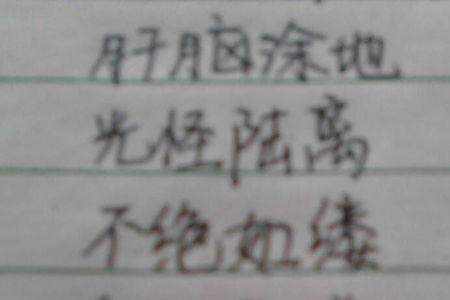 肝脑涂地
光怪陆离
不绝如缕